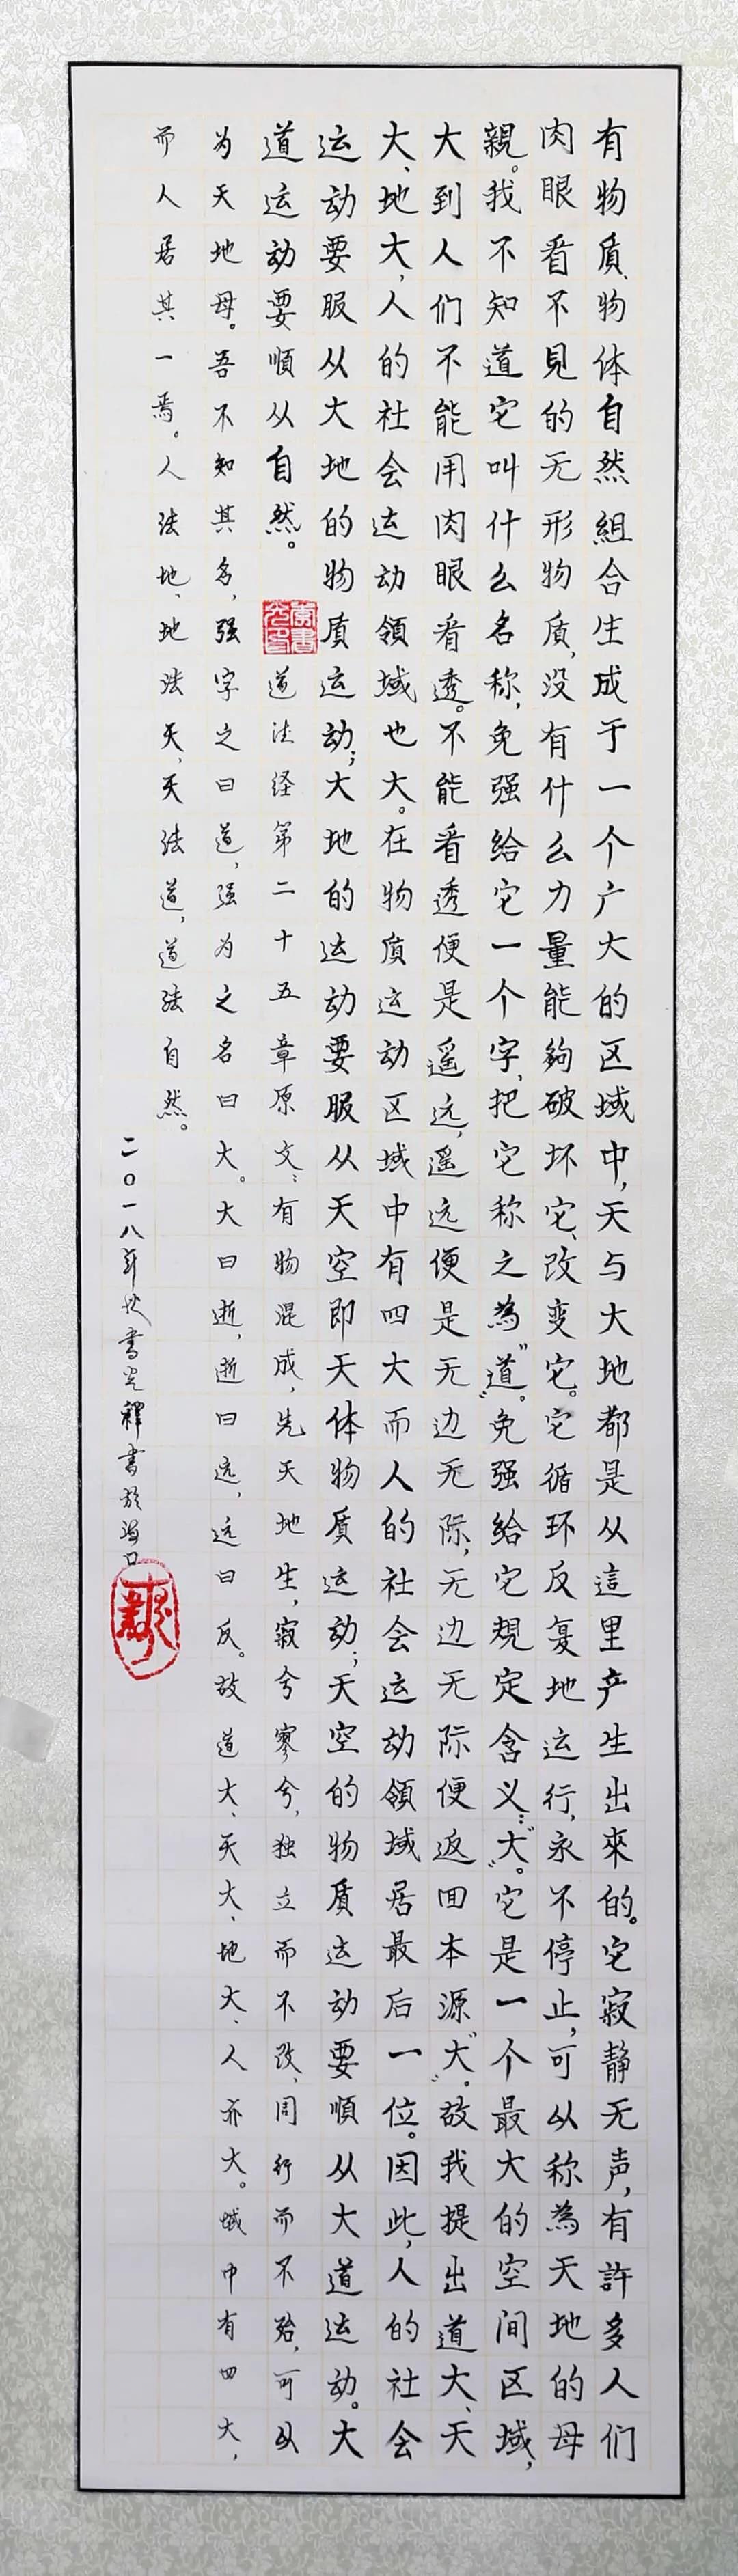 有物质、物体自然組合生成于一个广大的区域中，天与大地都是从這里产生出來的。它寂静无声，有許多人们
肉眼看不見的无形物质，没有什么力量能夠破坏它、改变它。它循环反复地运行，永不停止，可以称為天地的母
親。我不知道它叫什么名称，免强给它一个字，把它称之為“道”。免强给它規定含义：“大”。它是一个最大的空间区域，
大到人们不能用肉眼看透。不能看透便是遥远，遥远便是无边无际，无边无际便返回本源“大”。故我提出道大、天
大、地大，人的社会运动領域也大。在物质运动区域中有四大而人的社会运动領域居最后一位。因此，人的社会
运动要服从大地的物质运动；大地的运动要服从天空即天体物质运动；天空的物质运动要順从大道运动。大
道运动要順从自然。
道法经第二十五章原文：有物混成，先天地生，寂兮寥兮，独立而不改、周行而不殆，可以
为天地母。吾不知其名，强字之曰道，强为之名曰大。大曰逝，逝曰远，远曰反。故道大、天大、地大、人亦大。域中有四大，
而人居其一焉。人法地、地法天，天法道，道法自然。
二〇一八年秋書光釋書於海口